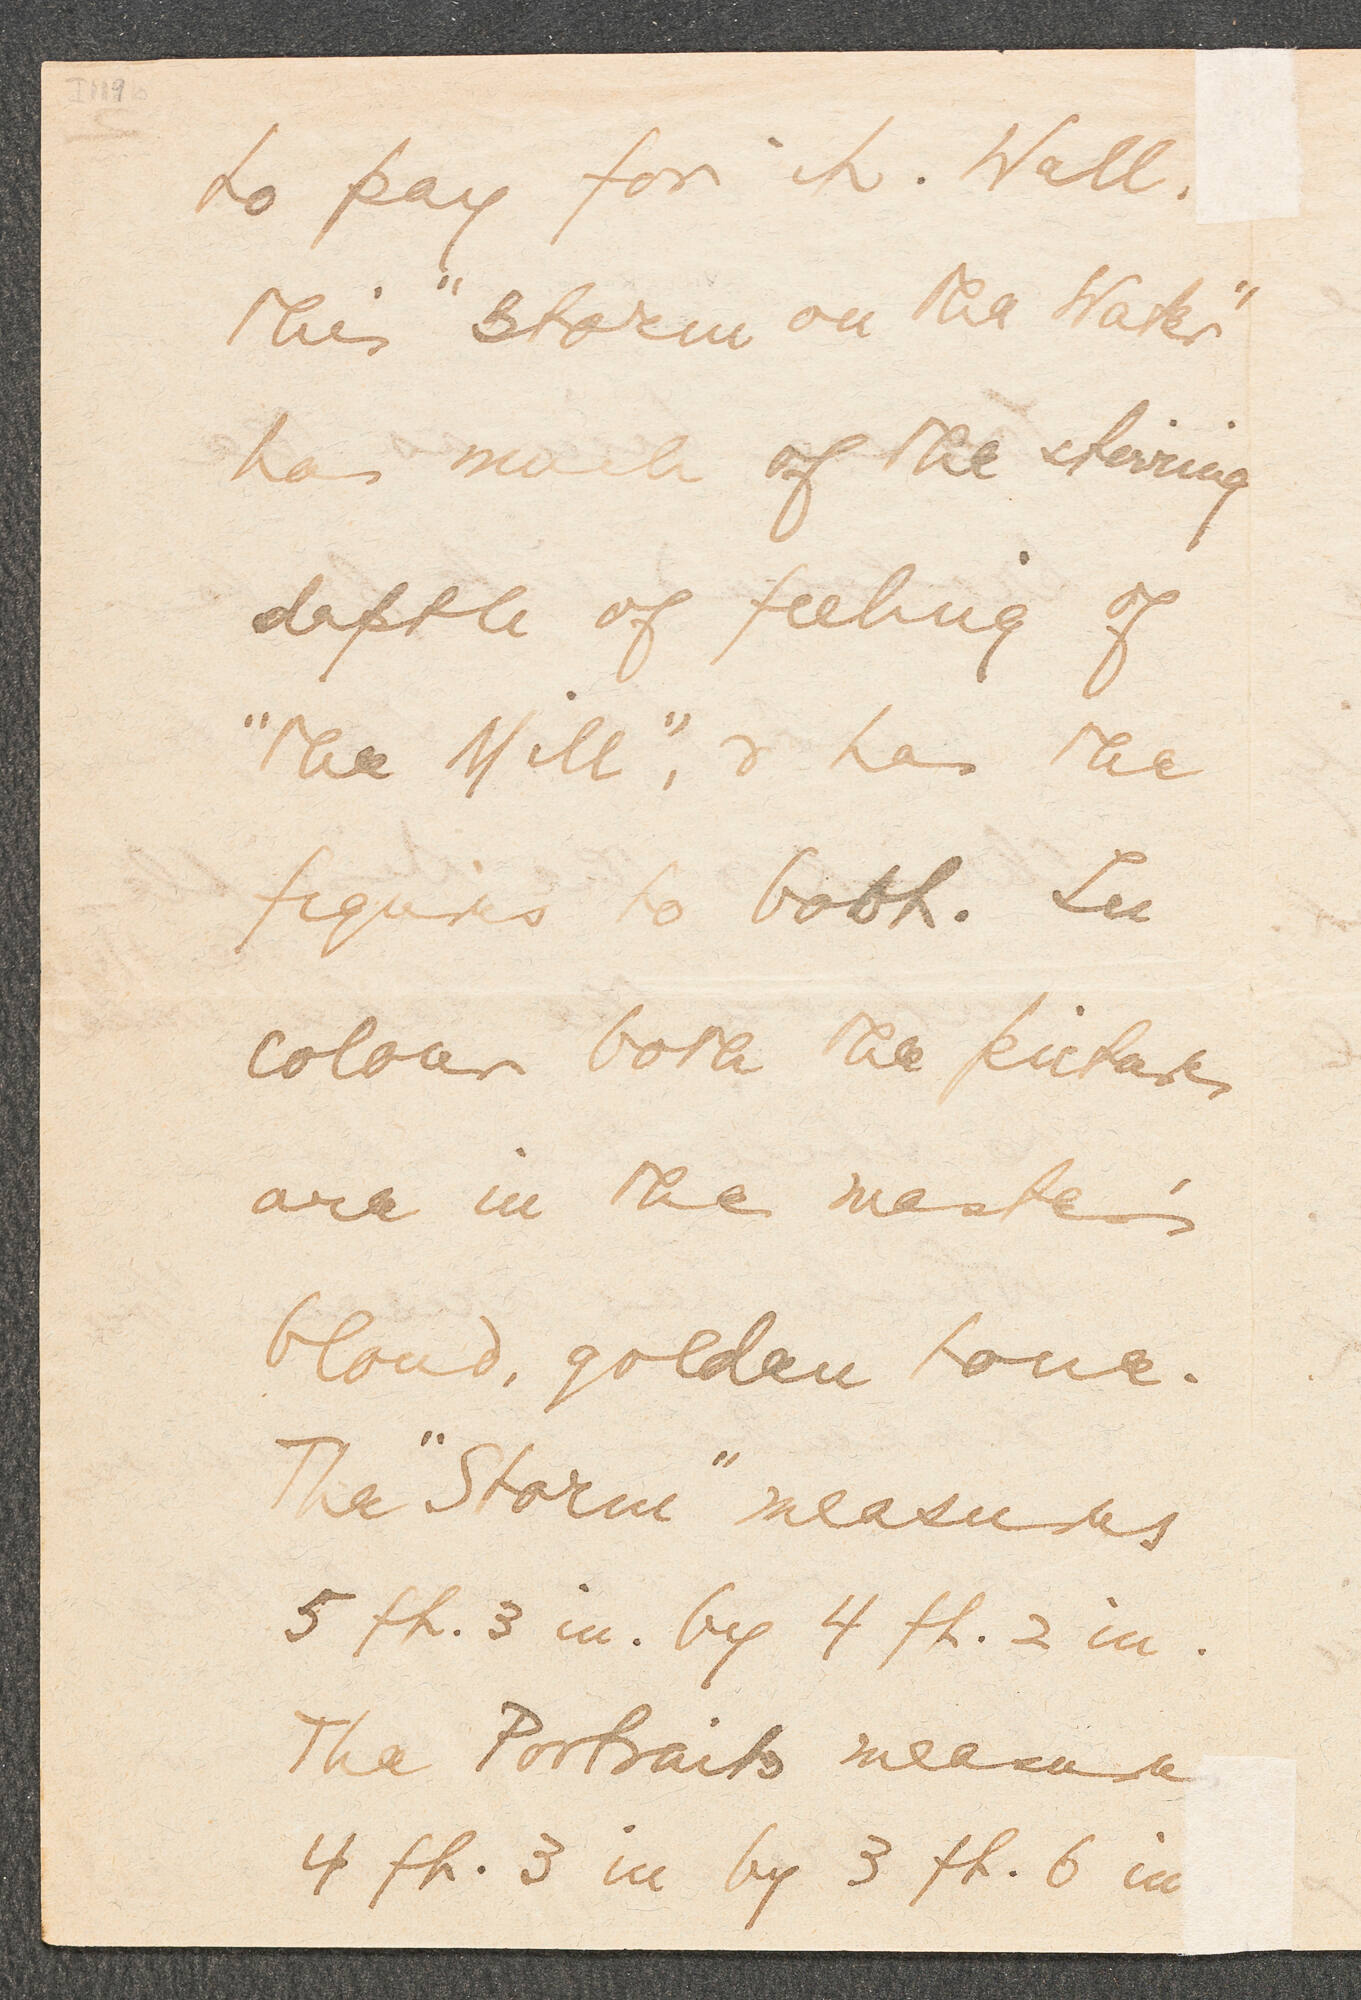 to pay for it. Well,
this "Storm on the Water"
has much of the stirring
depth of feeling of
"the Mill", & has the
figures to boot. In
colour both the pictures
are in the master's
blond, golden tone.
The "Storm" measures
5 ft. 3 in. by 4 ft. 2 in.
The Portraits measure
4 ft. 3 in by 3 ft. 6 in